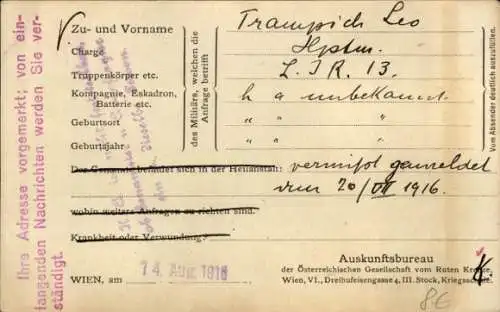 Ihre Adresse vorgemerkt; von ein-
langenden Nachrichten werden Sie ver-
ständigt.
Zu- und Vorname
Charge
Truppenkörper etc.
Kompagnie, Eskadron,
Batterie etc.
Geburtsort
Geburtsjahr
des Militärs, welchen die
Anfrage betrifft
Trampich Leo
Hptm.
L. I R. 13.
unbekannt
" " "
" " "
Vom Absender deutlich auszufüllen.
Der Genannte befindet sich in der Heilanstalt: vermißt gemeldet
20/VII 1916.
wohin weitere Anfragen zu richten sind.
Krankheit oder Verwundung?
WIEN, am 14. Aug. 1916
Auskunftsbureau
der Österreichischen Gesellschaft vom Roten Kreuze,
Wien, VI., Dreihufeisengasse 4, III. Stock, Kriegsschule.
8€